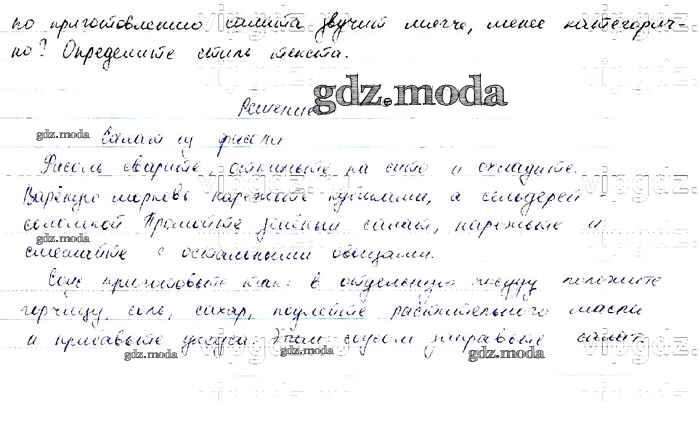 по приготовлению салата звучит мягче, менее категорич-
но? Определите стиль текста.
Решение
gdz.moda
Салат из фасоли
gdz.moda
Фасоль сварите, откиньте на сито и охладите.
Варёную морковь нарежьте кубиками, а сельдерей -
соломкой. Промойте зелёный салат, нарежьте и
gdz.moda
смешайте с остальными овощами.
gdz.moda
Соус приготовьте так: в отдельную посуду положите
горчицу, соль, сахар, подлейте растительного масла
и прибавьте уксуса. Этим соусом заправьте салат.
gdz.moda
gdz.moda